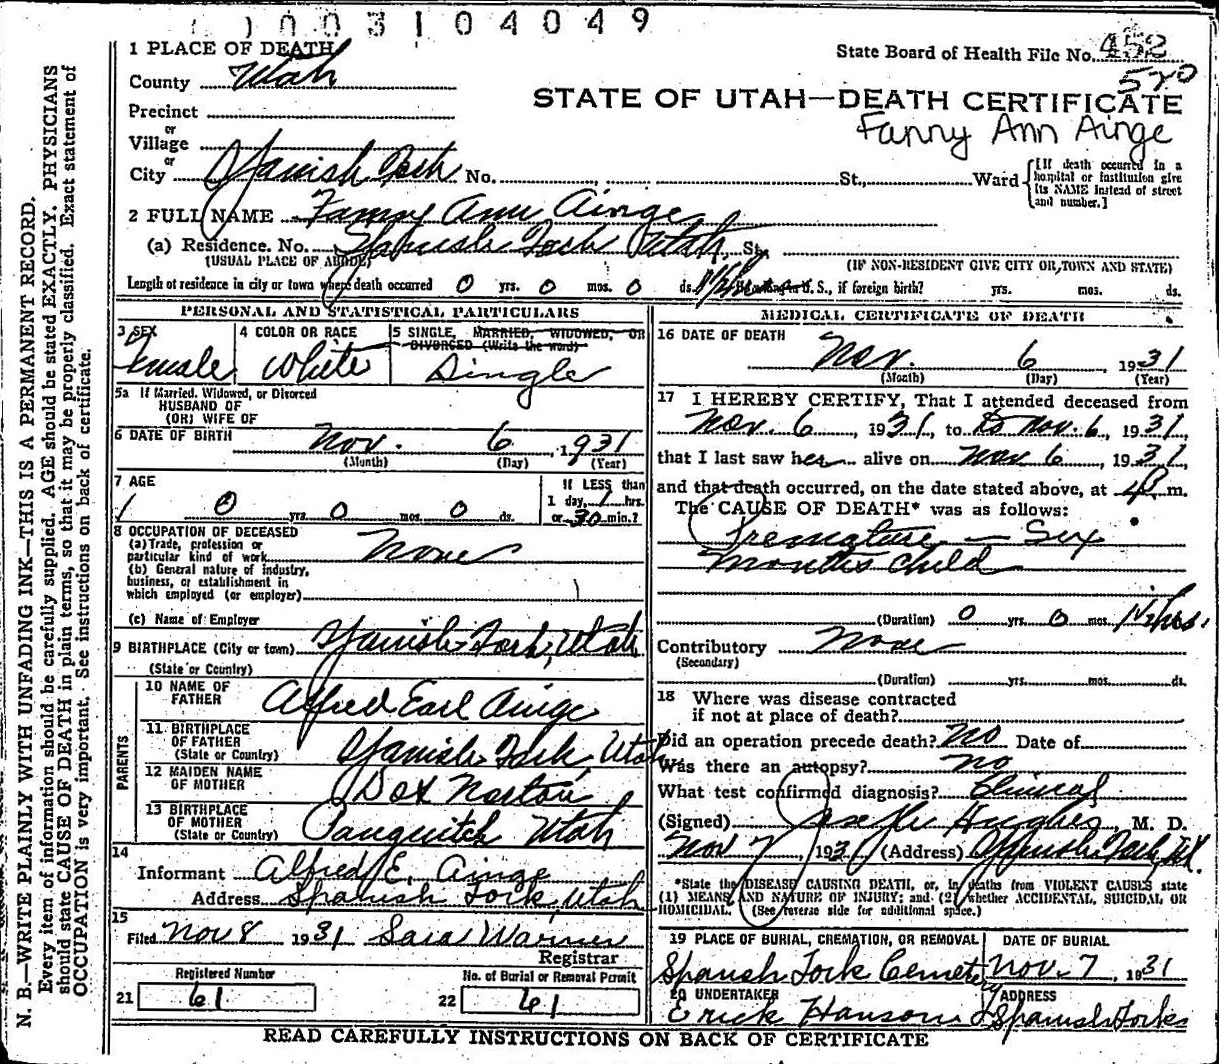 003104049
1 PLACE OF DEATH
State Board of Health File No. 452
County Utah
520
STATE OF UTAH—DEATH CERTIFICATE
Precinct
Fanny Ann Ainge
or
Village
or
City Spanish Fork No. St., Ward
[If death occurred in a
hospital or institution give
its NAME instead of street
and number.]
2 FULL NAME Fanny Ann Ainge
(a) Residence. No. Spanish Fork Utah, St.
(USUAL PLACE OF ABODE)
(IF NON-RESIDENT GIVE CITY OR TOWN AND STATE)
Length of residence in city or town where death occurred 0 yrs. 0 mos. 0 ds. U. S., if foreign birth? yrs. mos. ds.
PERSONAL AND STATISTICAL PARTICULARS
3 SEX
Female
4 COLOR OR RACE
White
5 SINGLE, MARRIED, WIDOWED, OR
DIVORCED (Write the word)
Single
5a If Married, Widowed, or Divorced
HUSBAND OF
(OR) WIFE OF
6 DATE OF BIRTH Nov. 6, 1931
(Month) (Day) (Year)
7 AGE
0 yrs. 0 mos. 0 ds.
If LESS than
1 day, 1 hrs.
or 30 min.?
8 OCCUPATION OF DECEASED
(a) Trade, profession or
particular kind of work None
(b) General nature of industry,
business, or establishment in
which employed (or employer)
(c) Name of Employer
9 BIRTHPLACE (City or town) Spanish Fork, Utah
(State or Country)
PARENTS
10 NAME OF
FATHER Alfred Earl Ainge
11 BIRTHPLACE
OF FATHER
(State or Country) Spanish Fork, Utah
12 MAIDEN NAME
OF MOTHER Dot Norton
13 BIRTHPLACE
OF MOTHER
(State or Country) Panguitch Utah
14
Informant Alfred E. Ainge
Address Spanish Fork, Utah
15
Filed Nov 8 1931 Sara Warner
Registrar
Registered Number
21 61
No. of Burial or Removal Permit
22 61
MEDICAL CERTIFICATE OF DEATH
16 DATE OF DEATH
Nov. 6 1931
(Month) (Day) (Year)
17 I HEREBY CERTIFY, That I attended deceased from
Nov. 6, 1931, to to Nov. 6, 1931,
that I last saw her alive on Nov 6, 1931,
and that death occurred, on the date stated above, at m.
The CAUSE OF DEATH* was as follows:
Premature — Six
Months Child
(Duration) 0 yrs. 0 mos. 1½ hrs.
Contributory None
(Secondary)
(Duration) yrs. mos. ds.
18 Where was disease contracted
if not at place of death?
Did an operation precede death? No Date of
Was there an autopsy? No
What test confirmed diagnosis? Clinical
(Signed) Hughes, M. D.
Nov 7, 1931 (Address) Spanish Fork, Ut.
*State the DISEASE CAUSING DEATH, or, in deaths from VIOLENT CAUSES state
(1) MEANS AND NATURE OF INJURY; and (2) whether ACCIDENTAL, SUICIDAL OR
HOMICIDAL. (See reverse side for additional space.)
19 PLACE OF BURIAL, CREMATION, OR REMOVAL
Spanish Fork Cemetery
DATE OF BURIAL
Nov. 7, 1931
20 UNDERTAKER
Erick Hanson
ADDRESS
Spanish Fork
READ CAREFULLY INSTRUCTIONS ON BACK OF CERTIFICATE
N. B.—WRITE PLAINLY WITH UNFADING INK—THIS IS A PERMANENT RECORD.
Every item of information should be carefully supplied. AGE should be stated EXACTLY. PHYSICIANS
should state CAUSE OF DEATH in plain terms, so that it may be properly classified. Exact statement of
OCCUPATION is very important. See instructions on back of certificate.